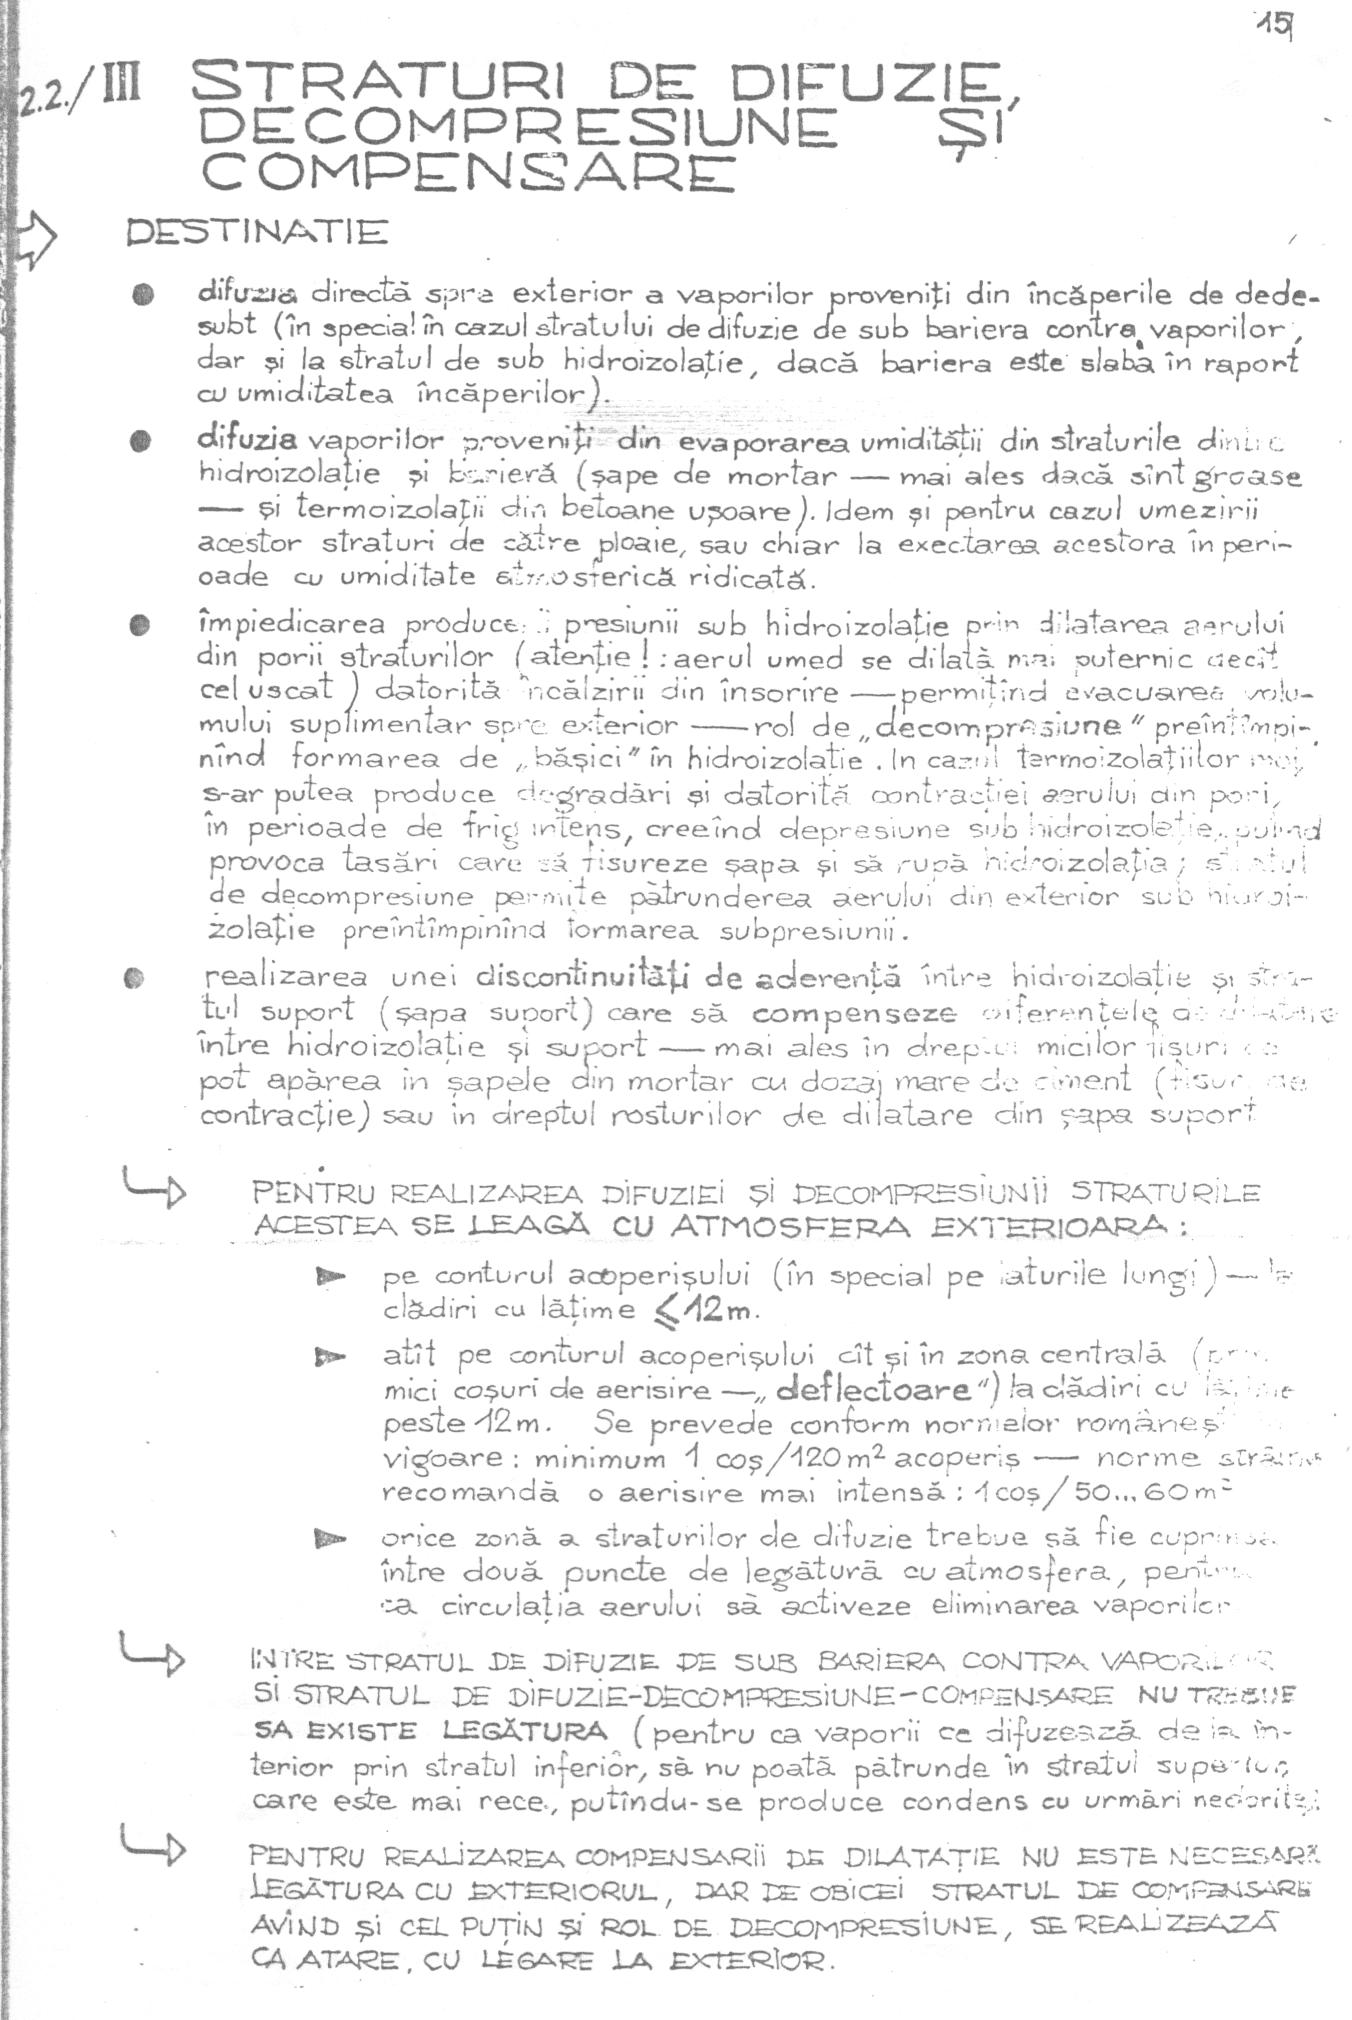 15
2.2./III STRATURI DE DIFUZIE,
DECOMPRESIUNE ȘI
COMPENSARE
DESTINATIE
difuzia directă spre exterior a vaporilor proveniți din încăperile de dede-
subt (în special în cazul stratului de difuzie de sub bariera contra vaporilor,
dar și la stratul de sub hidroizolație, dacă bariera este slabă în raport
cu umiditatea încăperilor).
difuzia vaporilor proveniți din evaporarea umidității din straturile dintre
hidroizolație și barieră (șape de mortar — mai ales dacă sînt groase
— și termoizolații din betoane ușoare). Idem și pentru cazul umezirii
acestor straturi de către ploaie, sau chiar la exectarea acestora în peri-
oade cu umiditate atmosferică ridicată.
împiedicarea producerii presiunii sub hidroizolație prin dilatarea aerului
din porii straturilor (atenție! : aerul umed se dilată mai puternic decît
cel uscat) datorită încălzirii din însorire — permițînd evacuarea volu-
mului suplimentar spre exterior — rol de „decompresiune" preîntîmpi-
nînd formarea de „bășici" în hidroizolație. In cazul termoizolațiilor moi,
s-ar putea produce degradări și datorită contracției aerului din pori,
în perioade de frig intens, creeînd depresiune sub hidroizolație, putînd
provoca tasări care să fisureze șapa și să rupă hidroizolația; stratul
de decompresiune permite pătrunderea aerului din exterior sub hidroi-
zolație preîntîmpinînd formarea subpresiunii.
realizarea unei discontinuități de aderență între hidroizolație și stra-
tul suport (șapa suport) care să compenseze diferențele de dilatare
între hidroizolație și suport — mai ales în dreptul micilor fisuri ce
pot apărea în șapele din mortar cu dozaj mare de ciment (fisuri de
contracție) sau în dreptul rosturilor de dilatare din șapa suport
PENTRU REALIZAREA DIFUZIEI ȘI DECOMPRESIUNII STRATURILE
ACESTEA SE LEAGĂ CU ATMOSFERA EXTERIOARA :
pe conturul acoperișului (în special pe laturile lungi) — la
clădiri cu lățime ⩽12m.
atît pe conturul acoperișului cît și în zona centrală (prin
mici coșuri de aerisire — „deflectoare") la clădiri cu lățime
peste 12m. Se prevede conform normelor românești
vigoare : minimum 1 coș/120m² acoperiș — norme străine
recomandă o aerisire mai intensă : 1coș/50...60m²
orice zonă a straturilor de difuzie trebue să fie cuprinsă
între două puncte de legătură cu atmosfera, pentru
ca circulația aerului să activeze eliminarea vaporilor
INTRE STRATUL DE DIFUZIE DE SUB BARIERA CONTRA VAPORILOR
SI STRATUL DE DIFUZIE-DECOMPRESIUNE-COMPENSARE NU TREBUE
SA EXISTE LEGĂTURA (pentru ca vaporii ce difuzează de la in-
terior prin stratul inferior, să nu poată pătrunde în stratul superior,
care este mai rece, putîndu-se produce condens cu urmări nedorite).
PENTRU REALIZAREA COMPENSARII DE DILATAȚIE NU ESTE NECESARĂ
LEGĂTURA CU EXTERIORUL, DAR DE OBICEI STRATUL DE COMPENSARE
AVÎND ȘI CEL PUȚIN ȘI ROL DE DECOMPRESIUNE, SE REALIZEAZĂ
CA ATARE, CU LEGARE LA EXTERIOR.